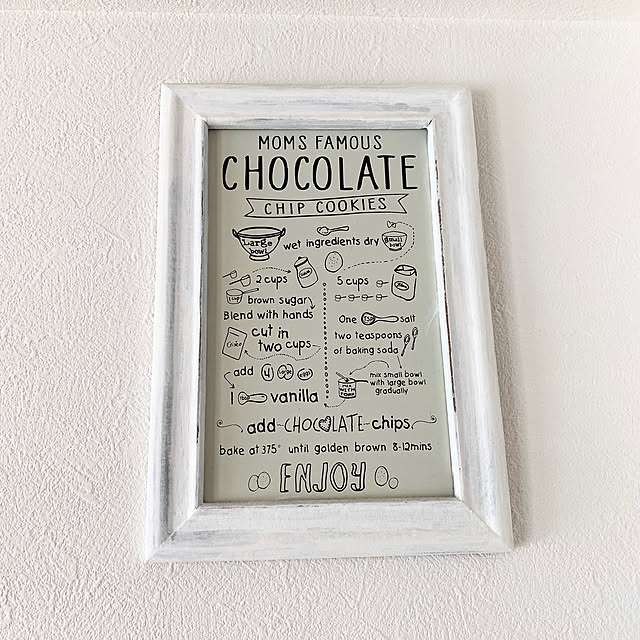 MOMS FAMOUS
CHOCOLATE
CHIP COOKIES
Large bowl
wet ingredients dry
small bowl
2 cups
5 cups
1 cup
brown sugar
Blend with hands
One TSP salt
cut in
two cups
two teaspoons
of baking soda
add 4 eggs
mix small bowl
with large bowl
gradually
1 vanilla
add CHOCOLATE chips
bake at 375° until golden brown 8-12mins
ENJOY